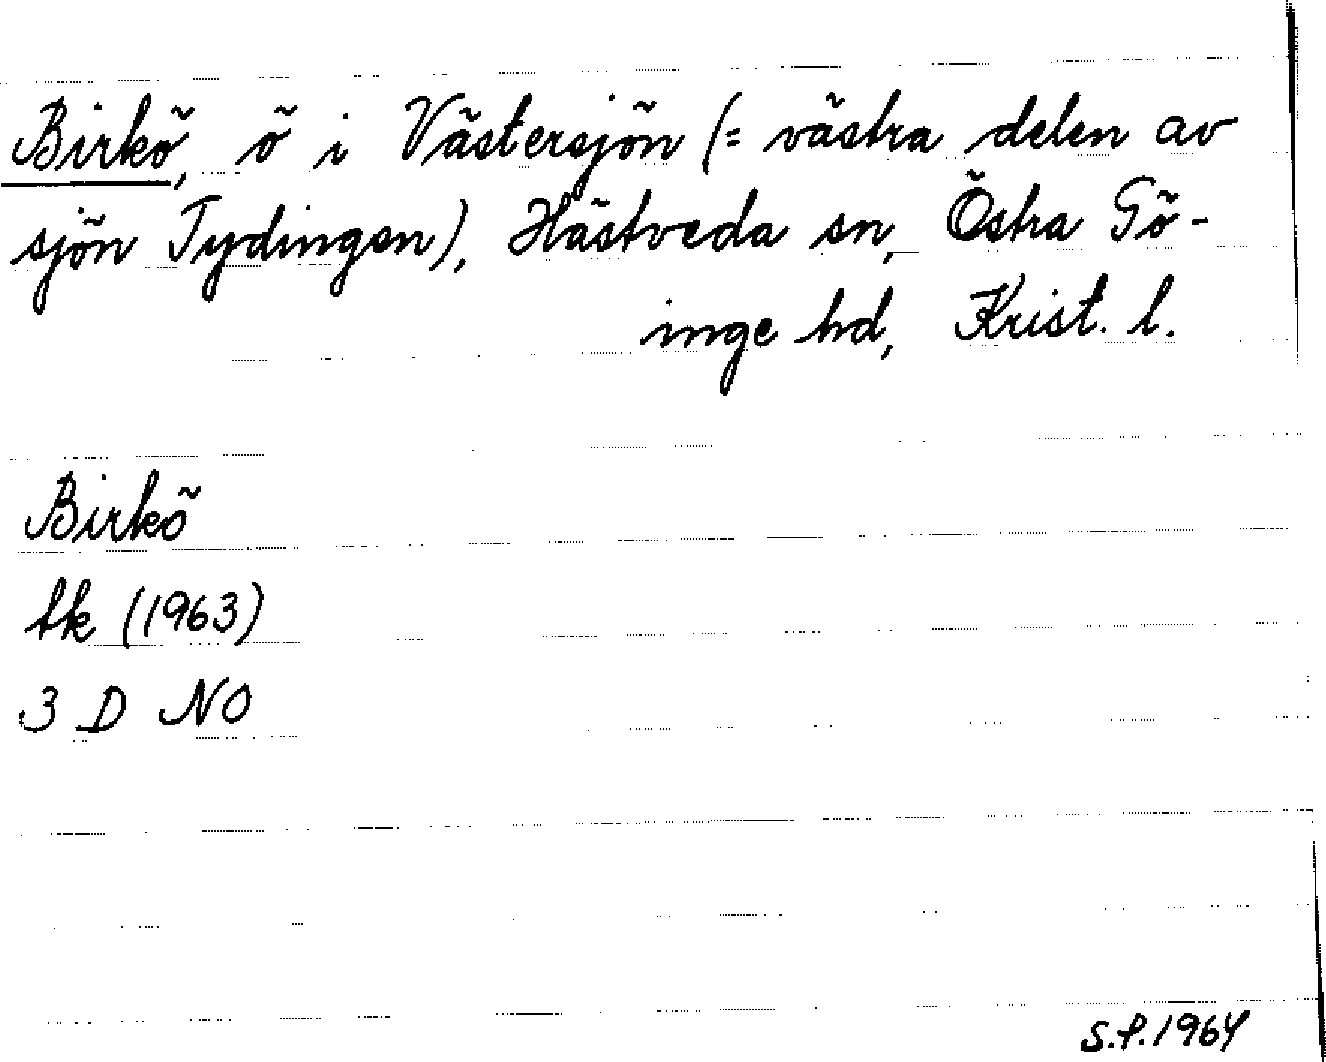 Birkö, ö i Västersjön (= västra delen av
sjön Tydingen), Hästveda sn, Östra Gö-
inge hd, Krist. l.
Birkö
tk (1963)
3 D NO
S.P.1964